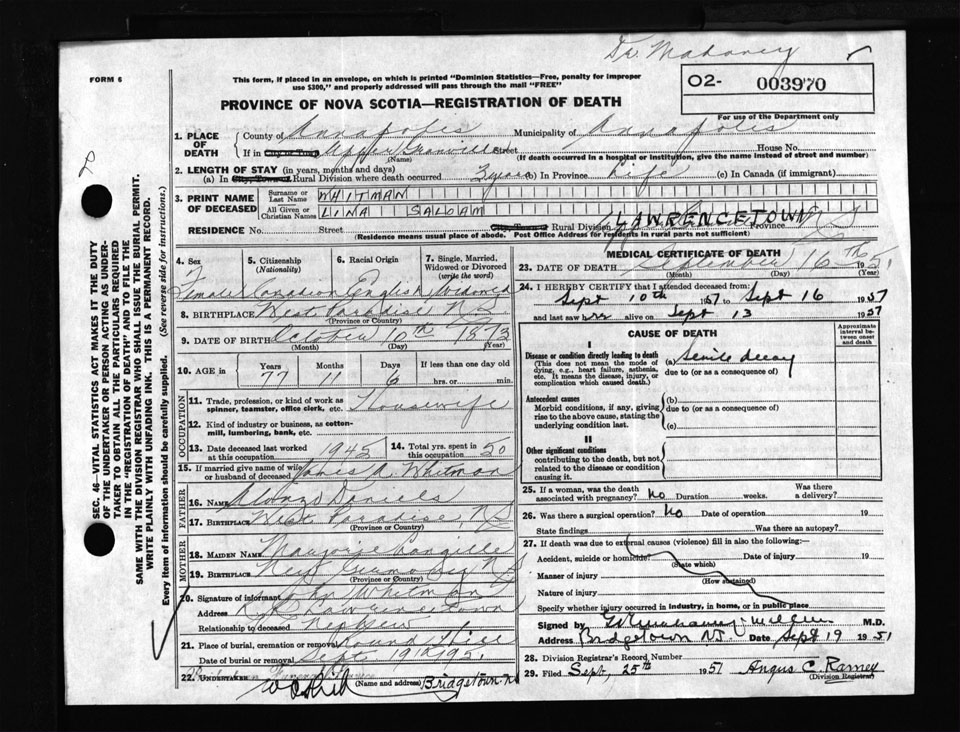 Dr. Mahoney
FORM 6
O2- 003970
For use of the Department only
This form, if placed in an envelope, on which is printed "Dominion Statistics—Free, penalty for improper
use $300," and properly addressed will pass through the mail "FREE"
PROVINCE OF NOVA SCOTIA—REGISTRATION OF DEATH
1. PLACE OF DEATH County of Annapolis Municipality of Annapolis
If in City or Town Upper Granville Street House No.
(Name) (If death occurred in a hospital or institution, give the name instead of street and number)
2. LENGTH OF STAY (in years, months and days)
(a) In City, Town or Rural Division where death occurred (b) In Province Life (c) In Canada (if immigrant)
3. PRINT NAME OF DECEASED Surname or Last Name WHITMAN
All Given or Christian Names LINA
RESIDENCE No. Street City, Town or Rural Division LAWRENCETOWN Province NS
(Residence means usual place of abode. Post Office Address for residents in rural parts not sufficient)
4. Sex 5. Citizenship (Nationality) 6. Racial Origin 7. Single, Married, Widowed or Divorced (write the word)
Female Canadian English Widowed
8. BIRTHPLACE West Paradise N.S.
(Province or Country)
9. DATE OF BIRTH October 10th 1873
(Month) (Day) (Year)
10. AGE in Years Months Days If less than one day old
77 11 6 hrs. or min.
OCCUPATION
11. Trade, profession, or kind of work as spinner, teamster, office clerk, etc. Housewife
12. Kind of industry or business, as cotton-mill, lumbering, bank, etc.
13. Date deceased last worked at this occupation 1945 14. Total yrs. spent in this occupation 50
15. If married give name of wife or husband of deceased James A. Whitman
FATHER
16. Name Alonzo Daniels
17. Birthplace West Paradise, NS
(Province or Country)
MOTHER
18. Maiden Name
19. Birthplace New Germany NS
(Province or Country)
20. Signature of informant John Whitman
Address Lawrencetown
Relationship to deceased Nephew
21. Place of burial, cremation or removal Round Hill
Date of burial or removal Sept. 19th 1951
22. Undertaker
(Name and address) Bridgetown NS
MEDICAL CERTIFICATE OF DEATH
23. DATE OF DEATH September 16th 1951
(Month) (Day) (Year)
24. I HEREBY CERTIFY that I attended deceased from:
Sept 10th 1951 to Sept 16 1951
and last saw her alive on Sept 13 1951
CAUSE OF DEATH
Approximate interval between onset and death
I
Disease or condition directly leading to death
(This does not mean the mode of dying, e.g., heart failure, asthenia, etc. It means the disease, injury, or complication which caused death.)
(a) Senile decay
due to (or as a consequence of)
Antecedent causes
Morbid conditions, if any, giving rise to the above cause, stating the underlying condition last.
(b)
due to (or as a consequence of)
(c)
II
Other significant conditions
contributing to the death, but not related to the disease or condition causing it.
25. If a woman, was the death associated with pregnancy? No Duration weeks. Was there a delivery?
26. Was there a surgical operation? No Date of operation 19
State findings Was there an autopsy?
27. If death was due to external causes (violence) fill in also the following:—
Accident, suicide or homicide? Date of injury 19
(State which)
Manner of injury
(How sustained)
Nature of injury
Specify whether injury occurred in industry, in home, or in public place
Signed by M.D.
Address Bridgetown NS. Date Sept 19 1951
28. Division Registrar's Record Number
29. Filed Sept, 25th 1951 Angus C. Ramey
(Division Registrar)
SEC. 46—VITAL STATISTICS ACT MAKES IT THE DUTY
OF THE UNDERTAKER OR PERSON ACTING AS UNDER-
TAKER TO OBTAIN ALL THE PARTICULARS REQUIRED
IN THE "REGISTRATION OF DEATH" AND TO FILE THE
SAME WITH THE DIVISION REGISTRAR WHO SHALL ISSUE THE BURIAL PERMIT.
WRITE PLAINLY WITH UNFADING INK. THIS IS A PERMANENT RECORD.
Every item of information should be carefully supplied. (See reverse side for instructions.)